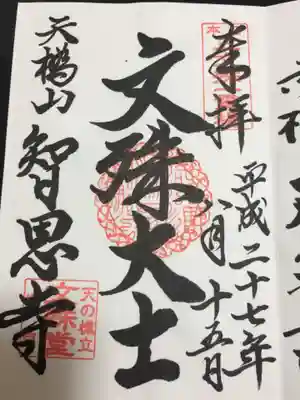 奉拝
平成二十七年
八月十五日
文殊大士
天橋山
智恩寺
天の橋立
文殊堂